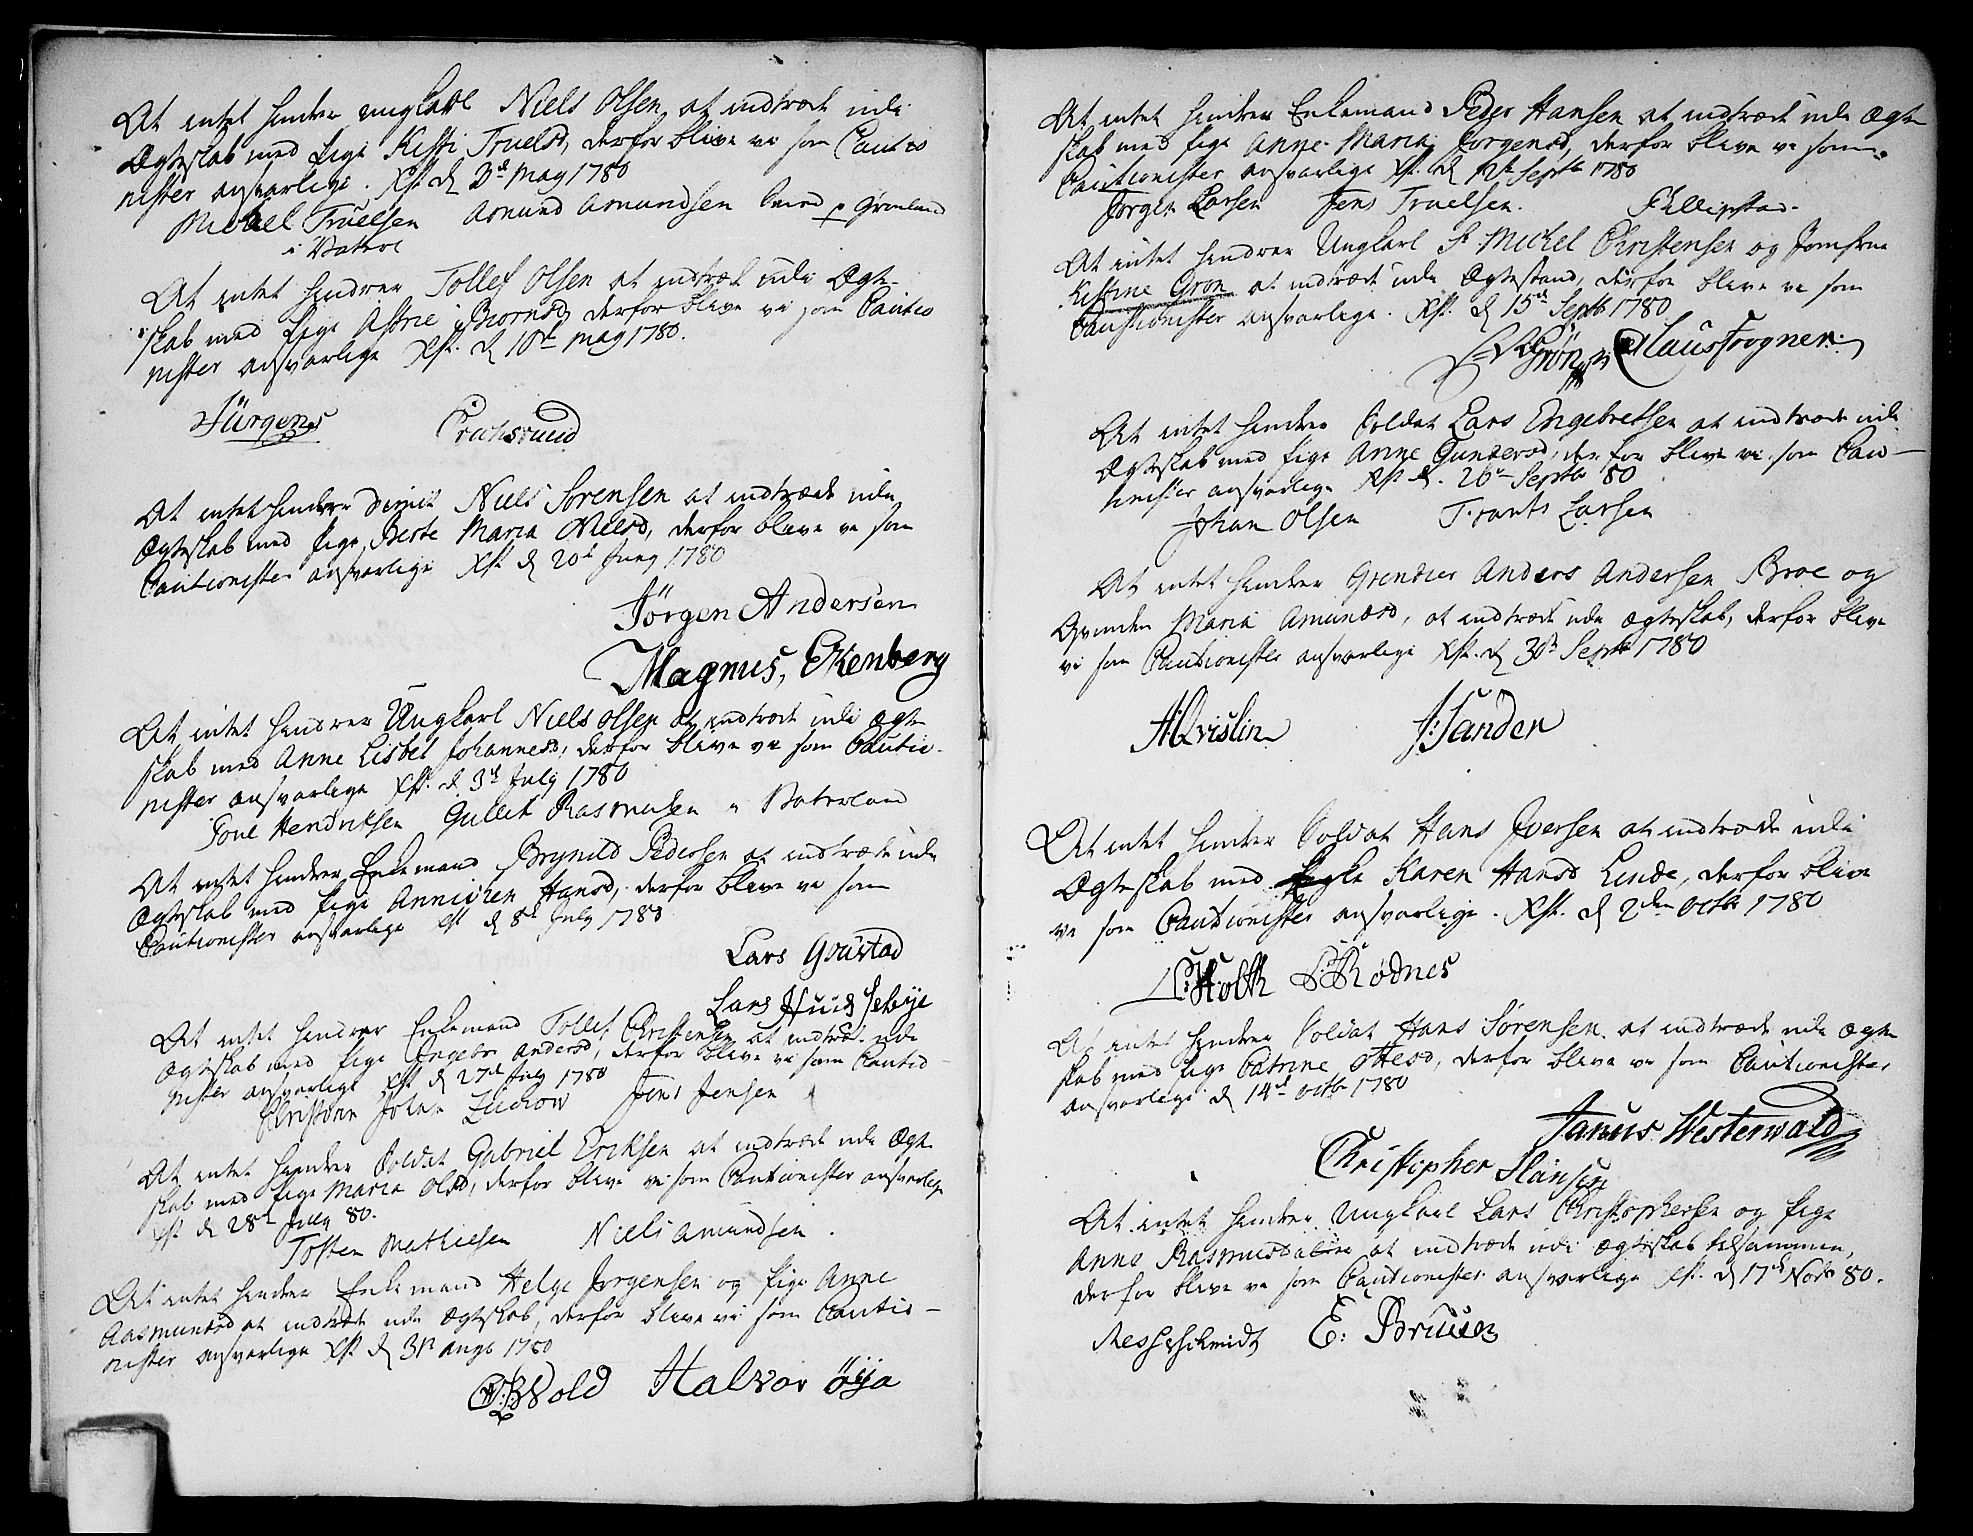 At intet hindrer ungkarl Niels Olsen at indtræde udi
Ægteskab med pige Kisti Truelsd, derfor blive vi som Cautio
nister ansvarlige. Xst. d 3d May 1780
Michel Truelsen Asmund Asmundsen
At intet hindrer Tollef Olsen at indtræde udi Ægte-
skab med pige Astrie Biørnsd, derfor blive vi som Cautio
nister ansvarlige Xst. d 10de May 1780.
Jürgens
At intet hindrer Niels Sørensen at indtræde udi
Ægteskab med pige Berte Maria Nielsd, derfor blive vi som
Cautionister ansvarlige Xst d 20d Juny 1780
Jörgen Andersen
Magnus, Ekenberg
At intet hindrer Ungkarl Niels Olsen at indtræde udi Ægte
skab med Anne Lisbet Johannesd, derfor blive vi som Cautio-
nister ansvarlige Xst. d. 3d July 1780
Poul Hendriksen Gullik Rasmusen Vaterland
At intet hindrer Enkemand Brynild Pedersen at indtræde udi
Ægteskab med pige Annichen Hansd, derfor blive vi som
Cautionister ansvarlige Xst d 8d July 1780
Lars Grüstad
Lars
At intet hindrer Enkemand Tollef Christensen at indtræde udi
Ægteskab med pige Ingebr Andersd, derfor blive vi som Cautio-
nister ansvarlige Xst d 27d July 1780
Jens Jensen
At intet hindrer Soldat Gabriel Eriksen at indtræde udi Ægte
skab med pige Maria Olsd, derfor blive vi som Cautionister ansvarlige
Xst d 28d July 80.
Tosten Mathiesen Niels Amundsen.
At intet hindrer Enkemand Helge Jørgensen og pige Anne
Aasmundsd at indtræde udi Ægteskab, derfor blive vi som Cautio-
nister ansvarlige Xst d 31t Augt 1780
Wold Halvor Öÿa
At intet hindrer Enkemand Peder Hansen at indtræde udi Ægte
skab med pige Anne Maria Jørgensd, derfor blive vi som
Cautionister ansvarlige Xst. d Septbr 1780
Jørgen Larsen Jens Truelsen. Fillipstad.
At intet hindrer Ungkarl Sr Michel Christensen og Jomfrue
Kistine Grøn at indtræde udi Ægtestand, derfor blive vi som
Cautionister ansvarlige. Xst. d 15d Septbr 1780
Grön Claus Frogner
At intet hindrer Soldat Lars Engebretsen at indtræde udi
Ægteskab med pige Anne Gundersd, derfor blive vi som Cau-
tinister ansvarlige Xst d. 26d Septbr 80
Johan Olsen Frants Larsen
At intet hindrer Grenader Anders Andersen Broe og
Qvinden Maria Amundsd, at indtræde udi Ægteskab, derfor blive
vi som Cautionister ansvarlige Xst. d 30d Septbr 1780
A: Qvislin J: Sanden
At intet hindrer Soldat Hans Iversen at indtræde udi
Ægteskab med Karen Hansd Linde, derfor blive
vi som Cautionister ansvarlige. Xst. d 2den Octbr 1780
Holth Rødnes
At intet hindrer Soldat Hans Sørensen at indtræde udi Ægte
skab med pige Catrine Olesd, derfor blive vi som Cautionister
ansvarlige d 14d Octbr 1780
Janus Westerwald
Christopher Hansen
At intet hindrer Ungkarl Lars Christophersen og pige
Anne Rasmusdatter at indtræde udi Ægteskab tilsammen,
derfor blive vi som Cautionister ansvarlige Xst. d 17d Novbr 80.
E: Bruun